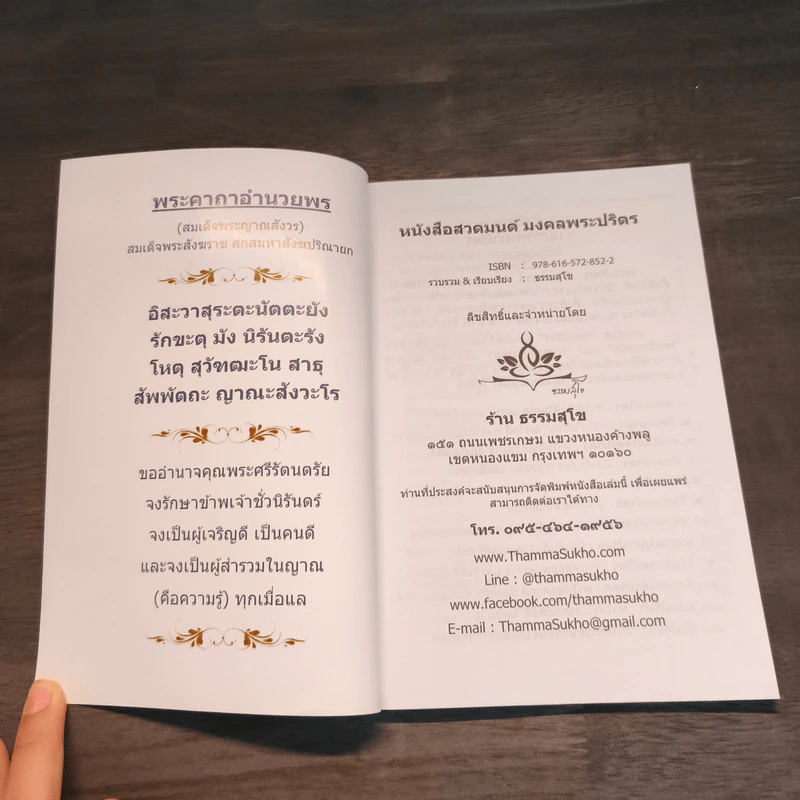 พระคาถาอำนวยพร
(สมเด็จพระญาณสังวร)
สมเด็จพระสังฆราช สกลมหาสังฆปริณายก
อิสะวาสุระตะนัตตะยัง
รักขะตุ มัง นิรันตะรัง
โหตุ สุวัฑฒะโน สาธุ
สัพพัตถะ ญาณะสังวะโร
ขออำนาจคุณพระศรีรัตนตรัย
จงรักษาข้าพเจ้าชั่วนิรันดร์
จงเป็นผู้เจริญดี เป็นคนดี
และจงเป็นผู้สำรวมในญาณ
(คือความรู้) ทุกเมื่อแล
หนังสือสวดมนต์ มงคลพระปริตร
ISBN : 978-616-572-852-2
รวบรวม & เรียบเรียง : ธรรมสุโข
ลิขสิทธิ์และจำหน่ายโดย
ธรรมสุโข
ร้าน ธรรมสุโข
๑๕๑ ถนนเพชรเกษม แขวงหนองค้างพลู
เขตหนองแขม กรุงเทพฯ ๑๐๑๖๐
ท่านที่ประสงค์จะสนับสนุนการจัดพิมพ์หนังสือเล่มนี้ เพื่อเผยแพร่
สามารถติดต่อเราได้ทาง
โทร. ๐๙๕-๔๖๔-๑๙๕๖
www.ThammaSukho.com
Line : @thammasukho
www.facebook.com/thammasukho
E-mail : ThammaSukho@gmail.com